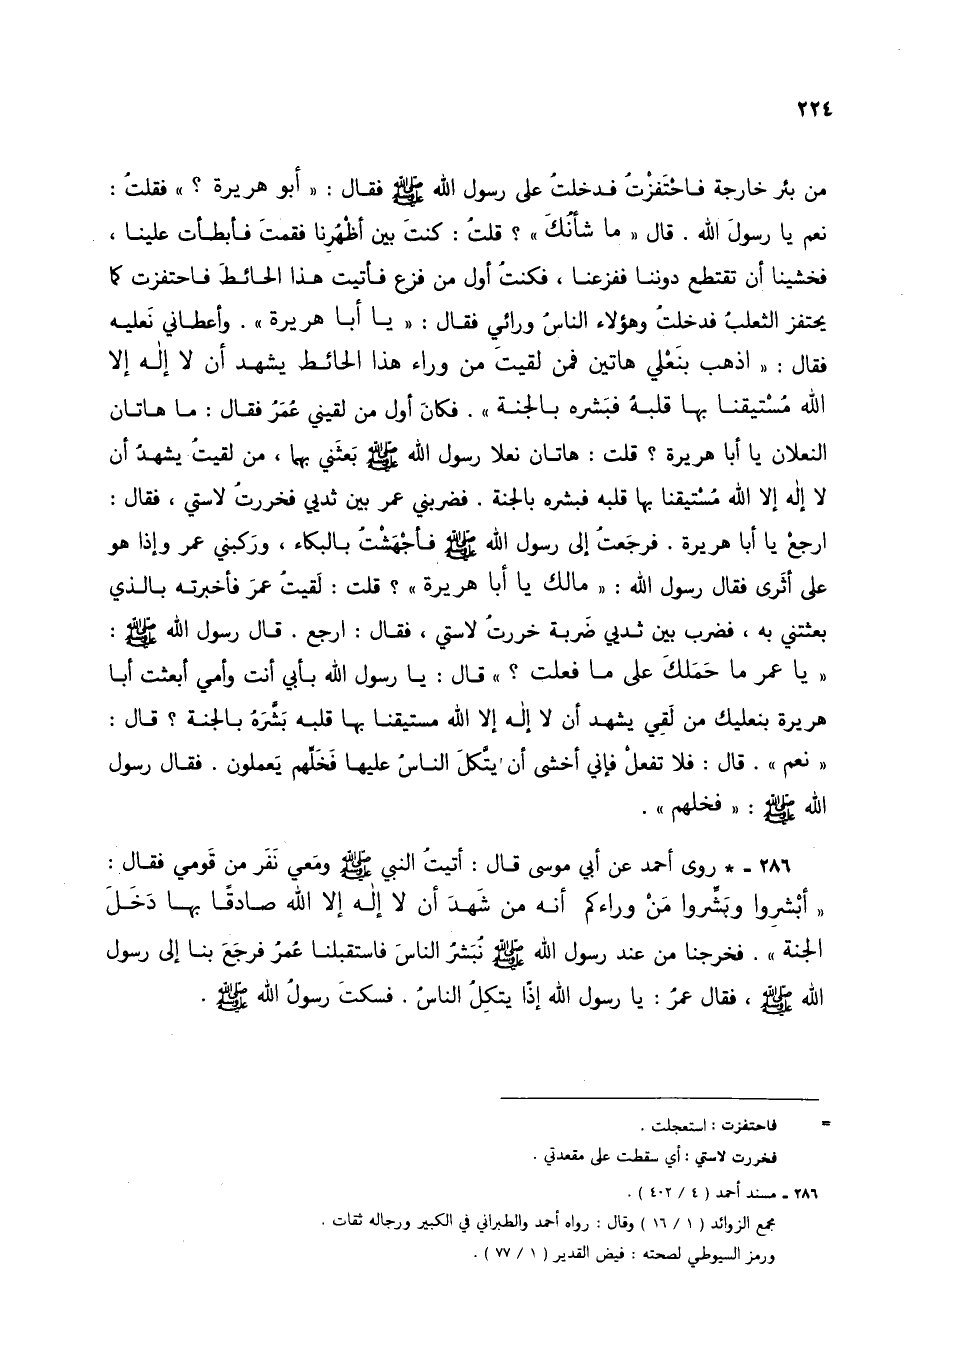 ٢٢٤
من بئر خارجة فـاحْتَفزْتُ فـدخلتُ على رسول الله ﷺ فقـال : « أَبو هريرة ؟ » فقلتُ :
نعم يا رسولَ الله . قال « ما شأنُكَ » ؟ قلتُ : كنتَ بين أظْهُرِنا فقمتَ فـأبطـأت علينـا ،
فخشينا أن تقتطع دوننـا ففزعنـا ، فكنتُ أول من فزع فـأتيت هـذا الحائـطَ فـاحتفزت كما
يحتفز الثعلبُ فدخلتُ وهؤلاء الناسُ ورائي فقـال : « يـا أبـا هريرة » . وأعطـاني نَعليـه
فقال : « اذهب بنَعْلي هاتين فمن لقيتَ من وراء هذا الحائـط يشهـد أن لا إلٰـه إلا
الله مُسْتيقنـا بهـا قلبـهُ فبَشره بـالجنـة » . فكانَ أول من لقيني عُمَرُ فقـال : مـا هـاتـان
النعلان يا أبا هريرة ؟ قلت : هاتـان نعلا رسول الله ﷺ بَعثَني بها ، من لقيتُ يشهدُ أن
لا إلٰه إلا الله مُسْتيقنا بها قلبه فبشره بالجنة . فضربني عمر بين ثديي فخررتُ لاستي ، فقال :
ارجعْ يا أبا هريرة . فرجَعتُ إلى رسول الله ﷺ فـأجْهَشْتُ بـالبكاء ، ورَكبني عمر وإذا هو
على أثَرى فقال رسول الله : « مالك يا أبا هريرة » ؟ قلت : لَقيتُ عمرَ فأخبرتـه بـالـذي
بعثتني به ، فضرب بين ثـديي ضَربـة خررتُ لاستي ، فقـال : ارجع . قـال رسول الله ﷺ :
« يا عمر ما حَمَلكَ على مـا فعلت ؟ » قـال : يـا رسول الله بـأبي أنت وأمي أبعثت أبـا
هريرة بنعليك من لَقي يشهـد أن لا إلٰـه إلا الله مستيقنـا بهـا قلبـه بَشَّرَهُ بـالجنـة ؟ قـال :
« نعم » . قال : فلا تفعلْ فإني أخشى أن يتَّكلَ النـاسُ عليهـا فَخَلِّهم يَعملون . فقـال رسول
الله ﷺ : « فخلهم » .
٢٨٦ ـ * روى أحمد عن أبي موسى قـال : أتيتُ النبي ﷺ ومَعي نَفَر من قَومي فقـال :
« أَبْشروا وبَشِّروا مَنْ وراءكم أنـه من شَهـدَ أن لا إلٰـه إلا الله صـادقًـا بهـا دَخَـلَ
الجنة » . فخرجنا من عند رسول الله ﷺ نُبَشرُ الناسَ فاستقبلنـا عُمرُ فرجَعَ بنـا إلى رسول
الله ﷺ ، فقال عمرُ : يا رسول الله إذًا يتكِلُ الناسُ . فسكتَ رسولُ الله ﷺ .
= فاحتفزت : استعجلت .
فخررت لاستي : أي سقطت على مقعدتي .
٢٨٦ ـ مسند أحمد ( ٤ / ٤٠٢ ) .
مجمع الزوائد ( ١ / ١٦ ) وقال : رواه أحمد والطبراني في الكبير ورجاله ثقات .
ورمز السيوطي لصحته : فيض القدير ( ١ / ٧٧ ) .